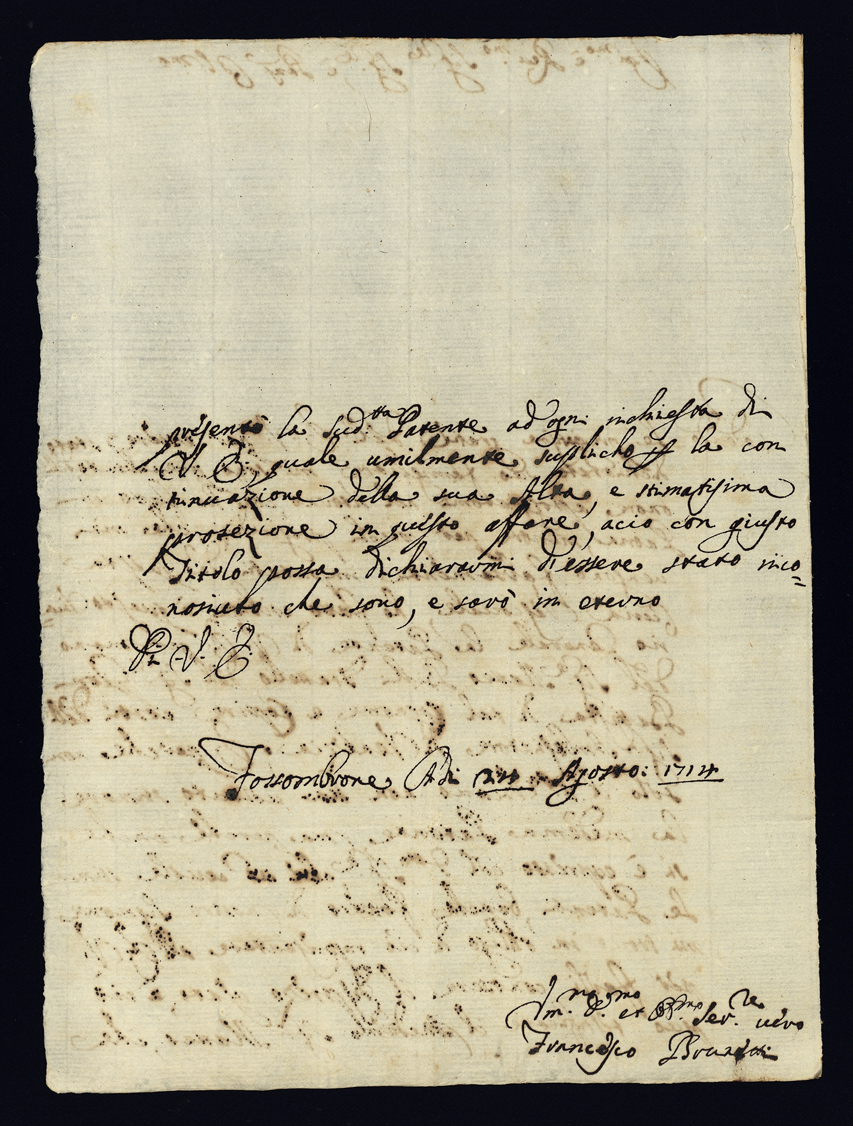 presento la sud:tta Patente ad ogni inchiesta di
V. E. quale umilmente suplicho p la con
tinuazione della sua Alta, e stimatisima
protezione in questo affare, acio con giusto
Titolo possa dichiararmi d'essere stato rico=
nosiuto che sono, e sarò in eterno
Di V. E.
Fossombrone Adi 24 Agosto: 1714
et Ser.re vero
Francesco